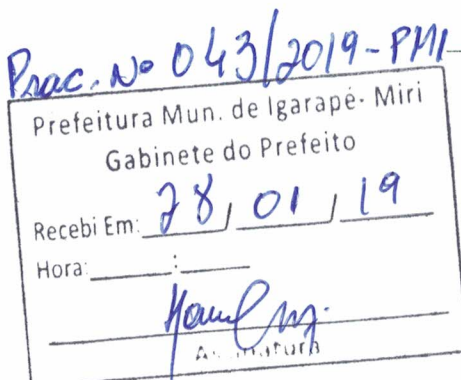 Proc. Nº 043/2019-PMI
Prefeitura Mun. de Igarapé- Miri
Gabinete do Prefeito
Recebi Em: 28 / 01 / 19
Hora: ____:____
Assinatura